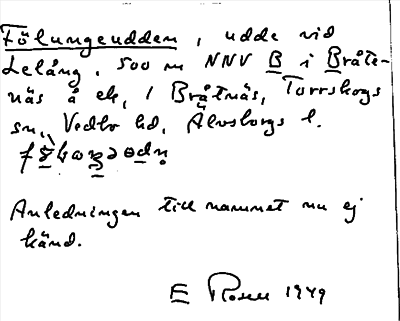 Fölungeudden, udde vid
Lelång, 500 m NNV B i Bråte-
näs å ek, 1 Bråtnäs, Torrskogs
sn, Vedbo hd, Älvsborgs l.
Anledningen till namnet nu ej
känd.
E Rosell 1949